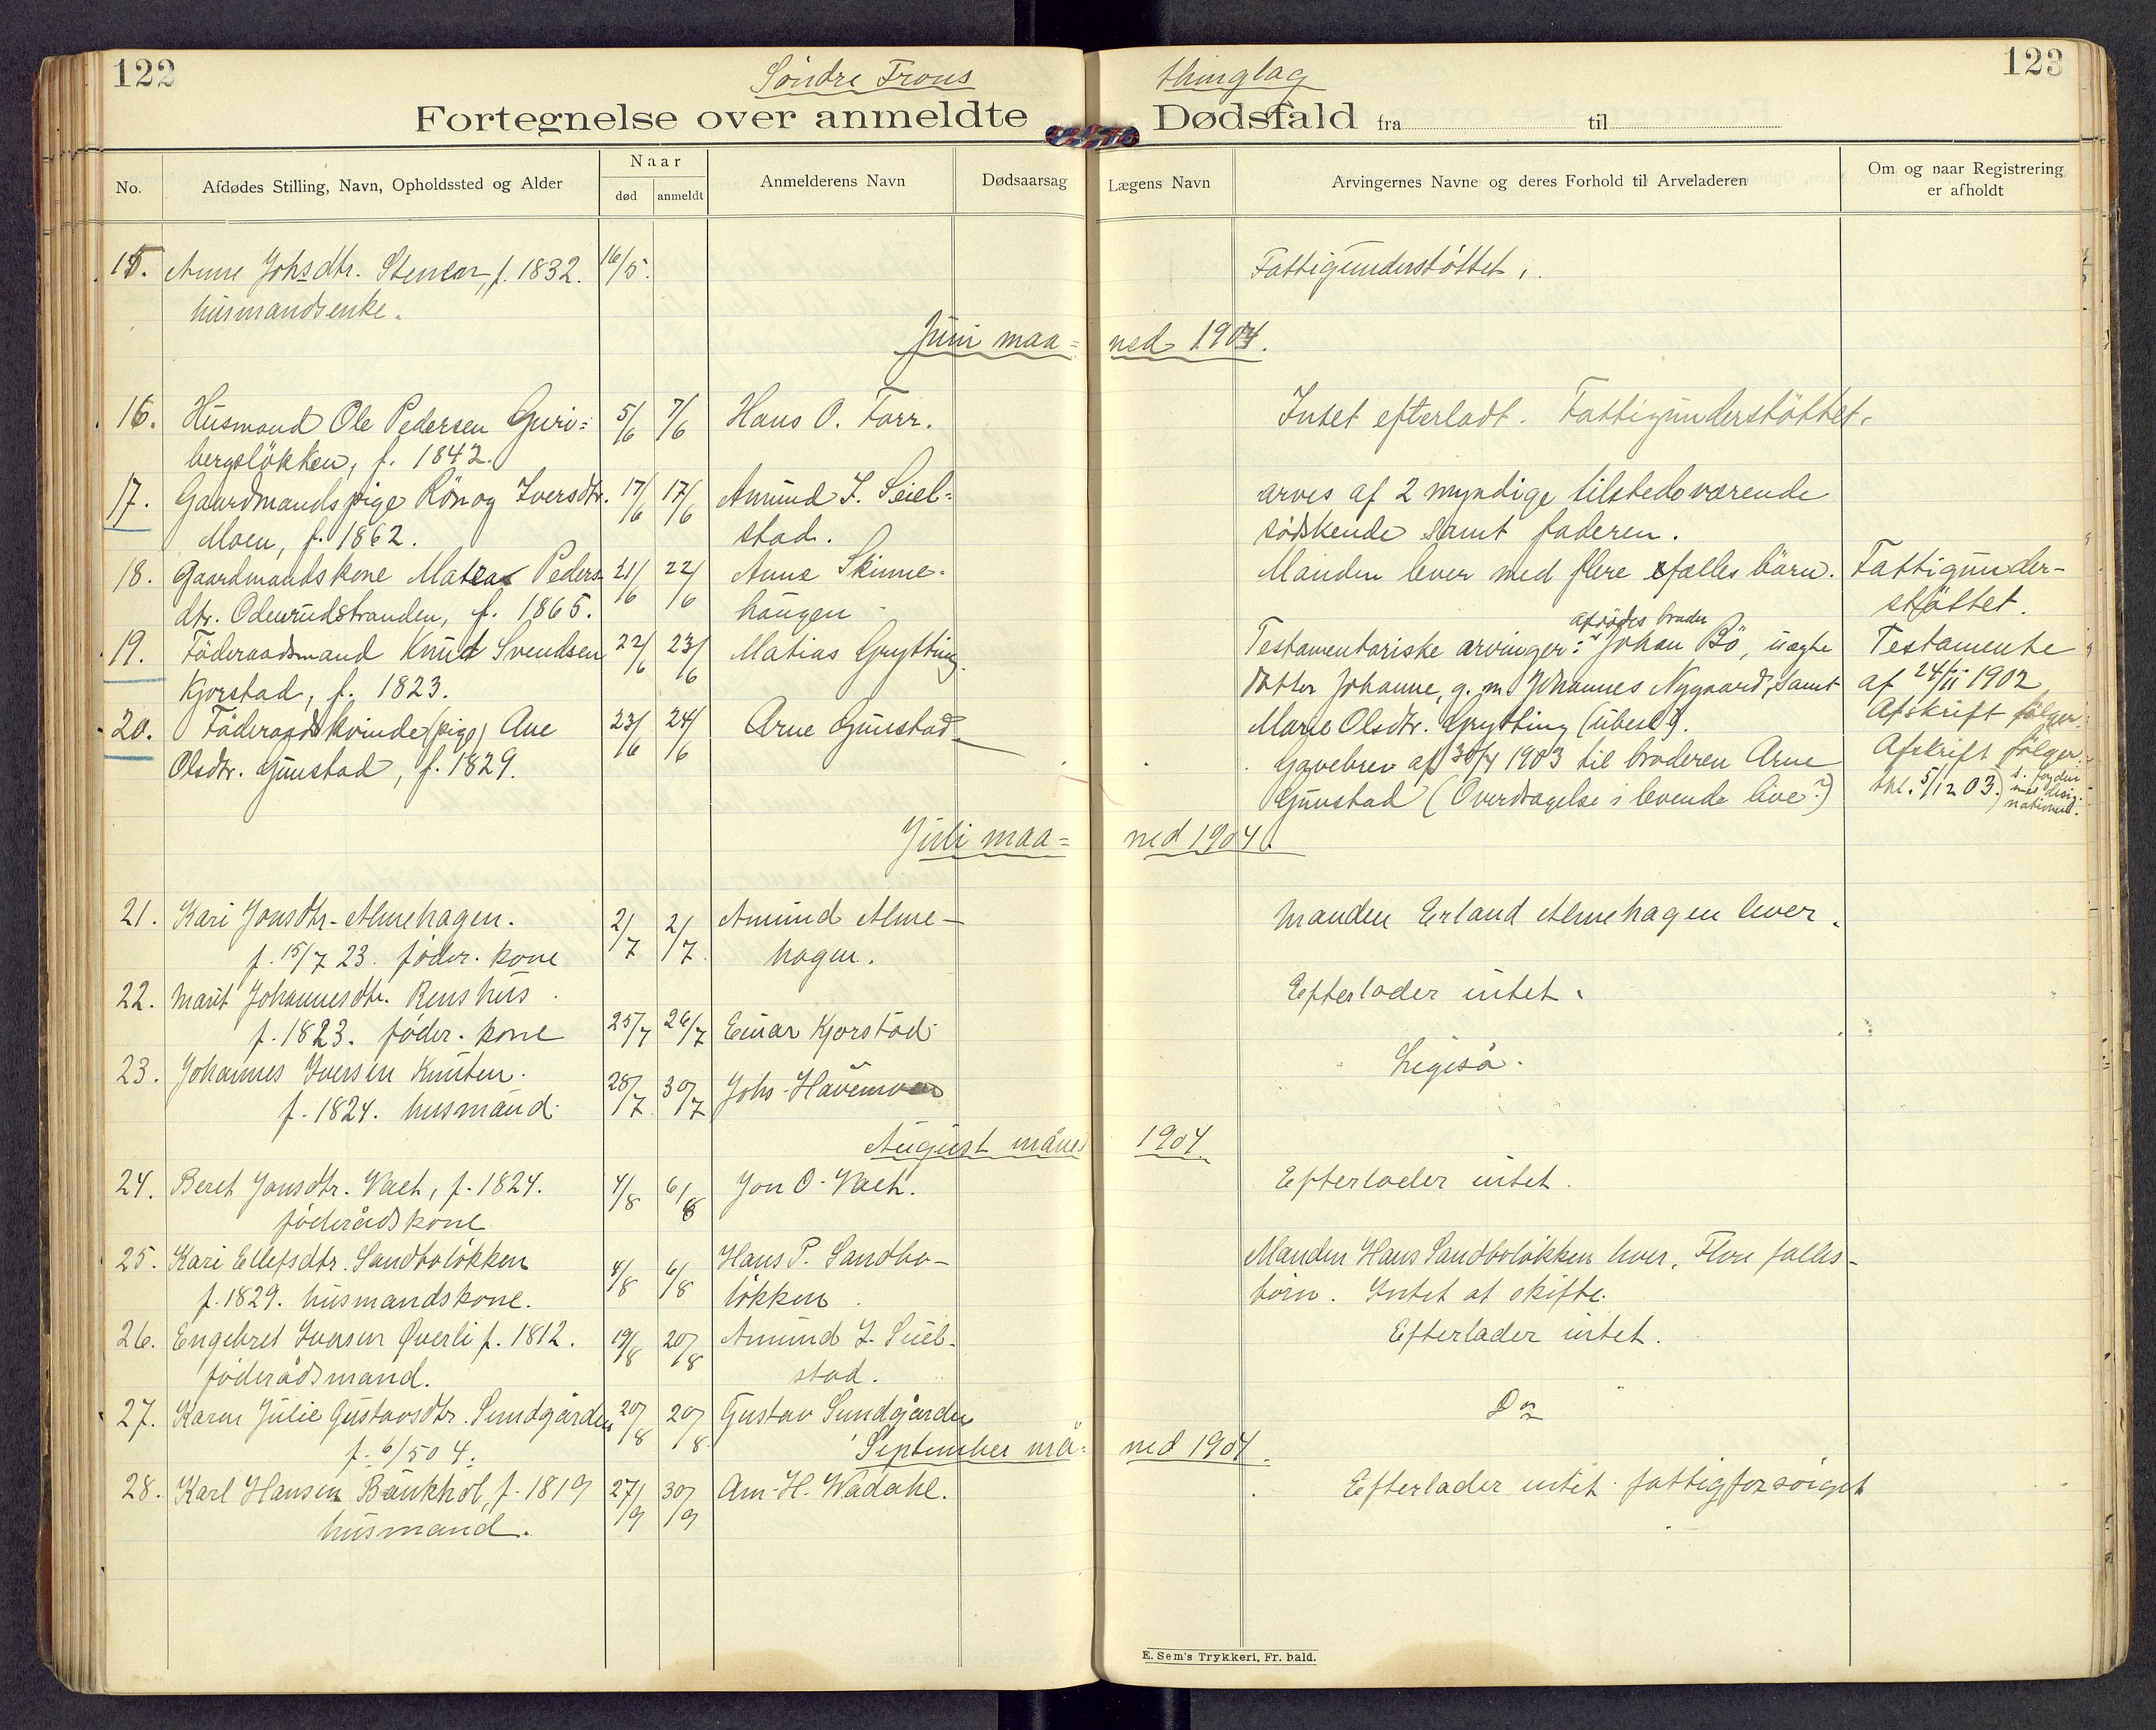 122
123
Söndre Frons thinglag
Fortegnelse over anmeldte Dødsfald fra til
No.
Afdødes Stilling, Navn, Opholdssted og Alder
Naar
død
anmeldt
Anmelderens Navn
Dødsaarsag
Lægens Navn
Arvingernes Navne og deres Forhold til Arveladeren
Om og naar Registrering
er afholdt
15. Anne Johsdtr. Stenen, f. 1832. 16/5. Fattigunderstöttet.
husmandsenke.
Juni maa= ned 1904.
16. Husmand Ole Pedersen Guri= 5/6 7/6 Hans O. Forr. Intet efterladt. Fattigunderstöttet.
bergslökken, f. 1842.
17. Gaardmandspige Rönog Iversdtr. 17/6 17/6 Amund I. Seiel= arves af 2 myndige tilstedeværende
Moen, f. 1862. stad. södskende samt faderen.
18. Gaardmandskone Matea Peders 21/6 22/6 Anne Skinne- Manden lever med flere fælles börn. Fattigunder-
dtr. Odenrudstranden, f. 1865. haugen støttet.
afdødes broder
19. Föderaadsmand Knut Svendsen 22/6 23/6 Matias Grytting. Testamentariske arvinger: Johan Bö, uægte Testamente
Kjorstad, f. 1823. datter Johanne, g. m. Johannes Nygaard, samt af 24/11 1902
Marie Olsdtr. Grytting (ubesl). Afskrift følger.
20. Föderaadskvinde (pige) Ane 23/6 24/6 Arne Gunstad
Olsdtr. Gunstad, f. 1829. Gavebrev af 30/4 1903 til broderen Arne Afskrift følger.
Gunstad (Overdragelse i levende live?) thl. 5/12 03.
Juli maa= ned 1904.
21. Kari Jonsdtr. Almehagen. 2/7 2/7 Amund Alme- Manden Erland Almehagen lever.
f. 15/7 23. føder. kone hagen.
22. Marit Johannesdtr. Renshus Efterlader intet.
f. 1823. føder. kone 25/7 26/7 Einar Kjorstad
23. Johannes Iversen Knuten. 28/7 30/7 Johs. Havemoen Ligeså.
f. 1824. husmand.
August måned 1904.
24. Beret Jonsdtr. Vaeh, f. 1824. 4/8 6/8 Jon O. Vaeh. Efterlader intet.
føderådskone
25. Kari Ellefsdtr. Sandbolökken 4/8 6/8 Hans P. Sandbo- Manden Hans Sandbolökken lever. Flere fælles-
f. 1829. husmandskone. lökken børn. Intet at skifte.
26. Engebret Iversen Øverli f. 1812. 19/8 20/8 Amund I. Seiel- Efterlader intet.
føderådsmand. stad.
27. Karen Julie Gustavsdtr. Sundgården 20/8 20/8 Gustav Sundgården Do
f. 6/5 04.
September må= ned 1904.
28. Karl Hansen Bänkhol, f. 1819 27/9 30/9 Am. H. Wadahl. Efterlader intet. fattigforsörget
husmand.
E. Sem's Trykkeri, Fr.hald.